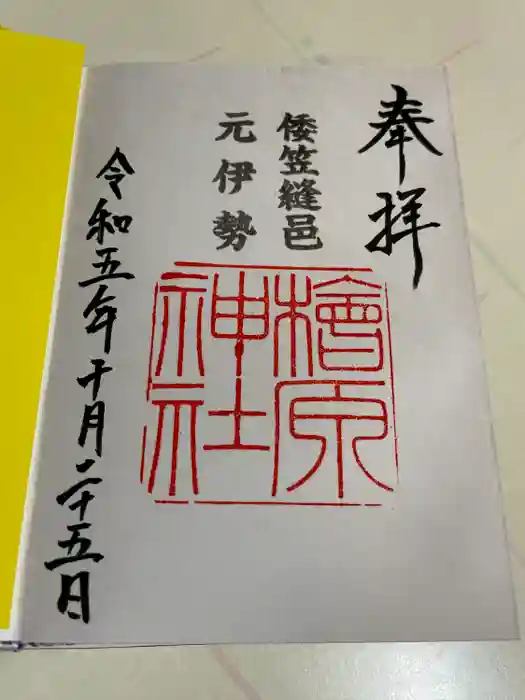 奉拝
倭笠縫邑
元伊勢
檜原
神社
令和五年十月二十五日